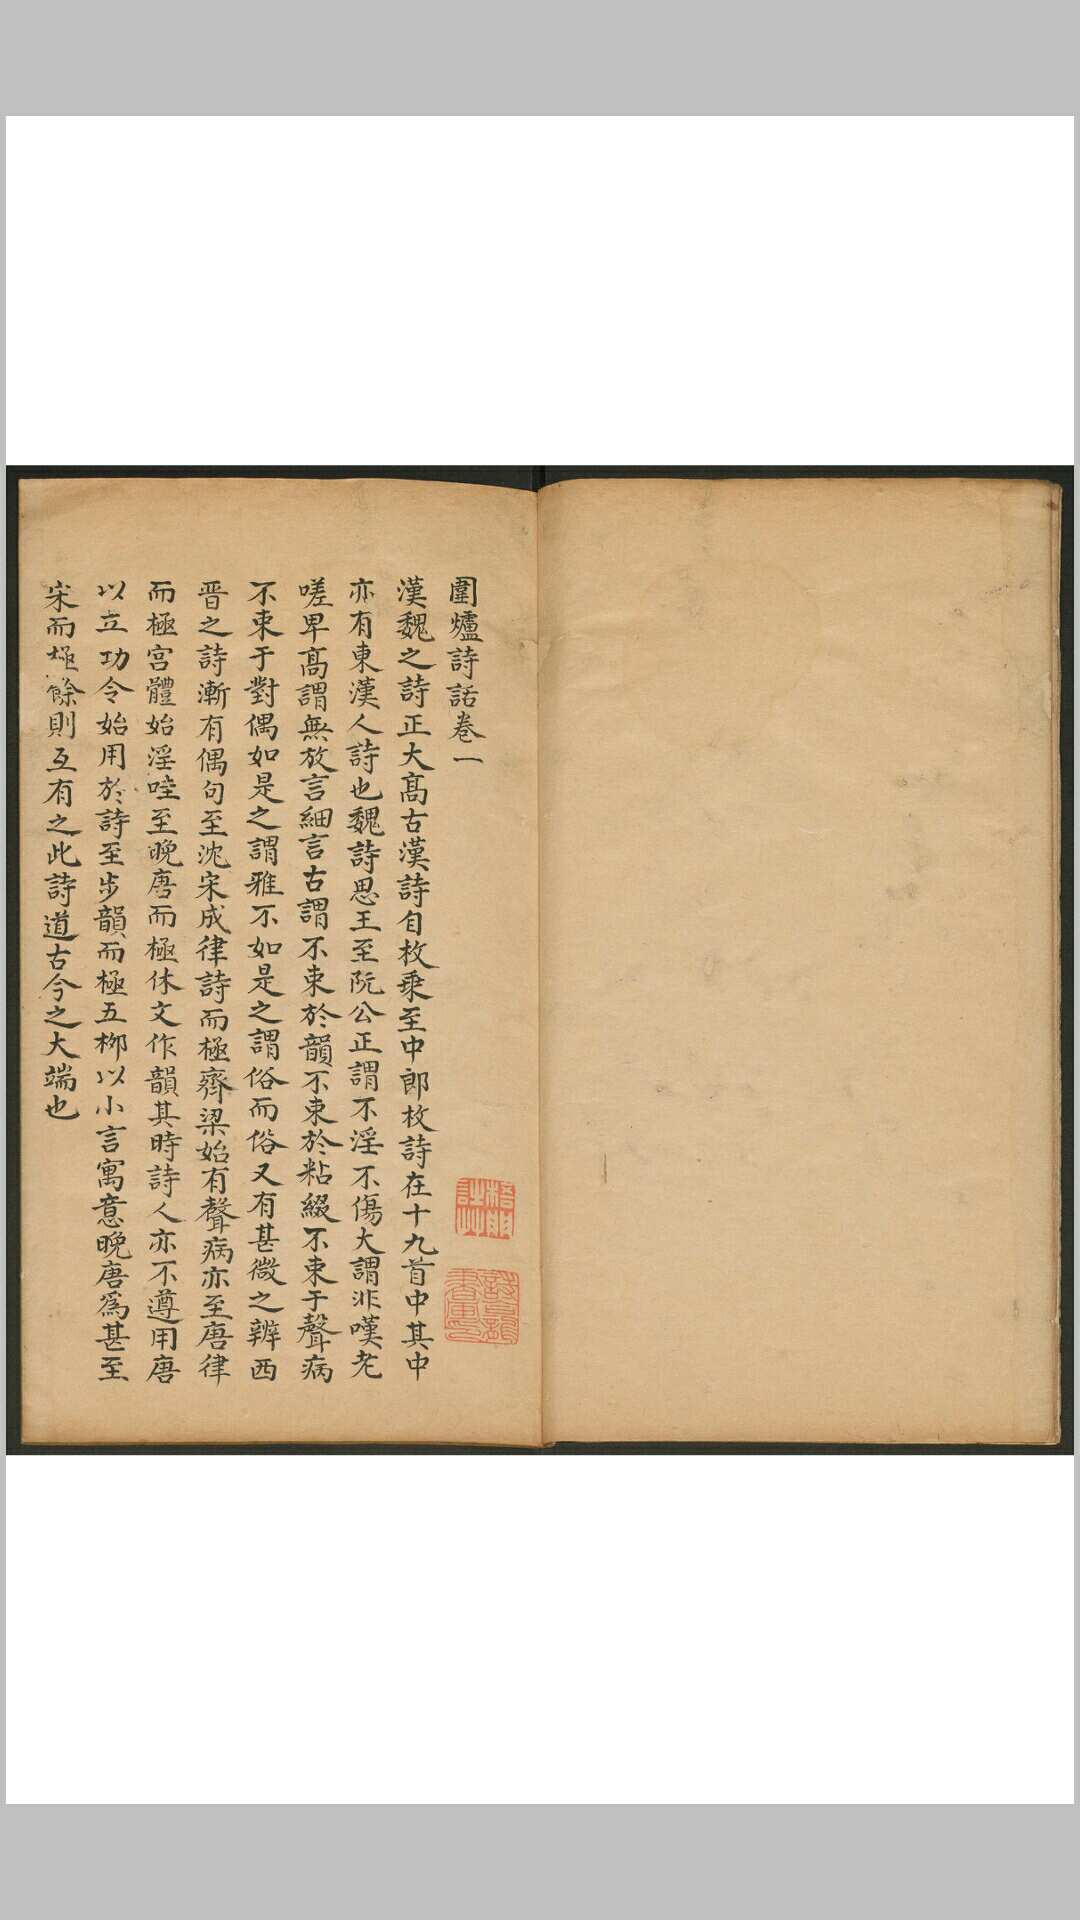 圍爐詩話卷一
漢魏之詩正大高古漢詩自枚乗至中郎枚詩在十九首中其中
亦有東漢人詩也魏詩思王至阮公正謂不淫不傷大謂非嘆老
嗟卑高謂無放言細言古謂不束於韻不束於粘綴不束于聲病
不束于對偶如是之謂雅不如是之謂俗而俗又有甚微之辨西
晋之詩漸有偶句至沈宋成律詩而極齊梁始有聲病亦至唐律
而極宫體始淫哇至晚唐而極休文作韻其時詩人亦不遵用唐
以立功令始用於詩至步韻而極五栁以小言寓意晚唐爲甚至
宋而極餘則互有之此詩道古今之大端也